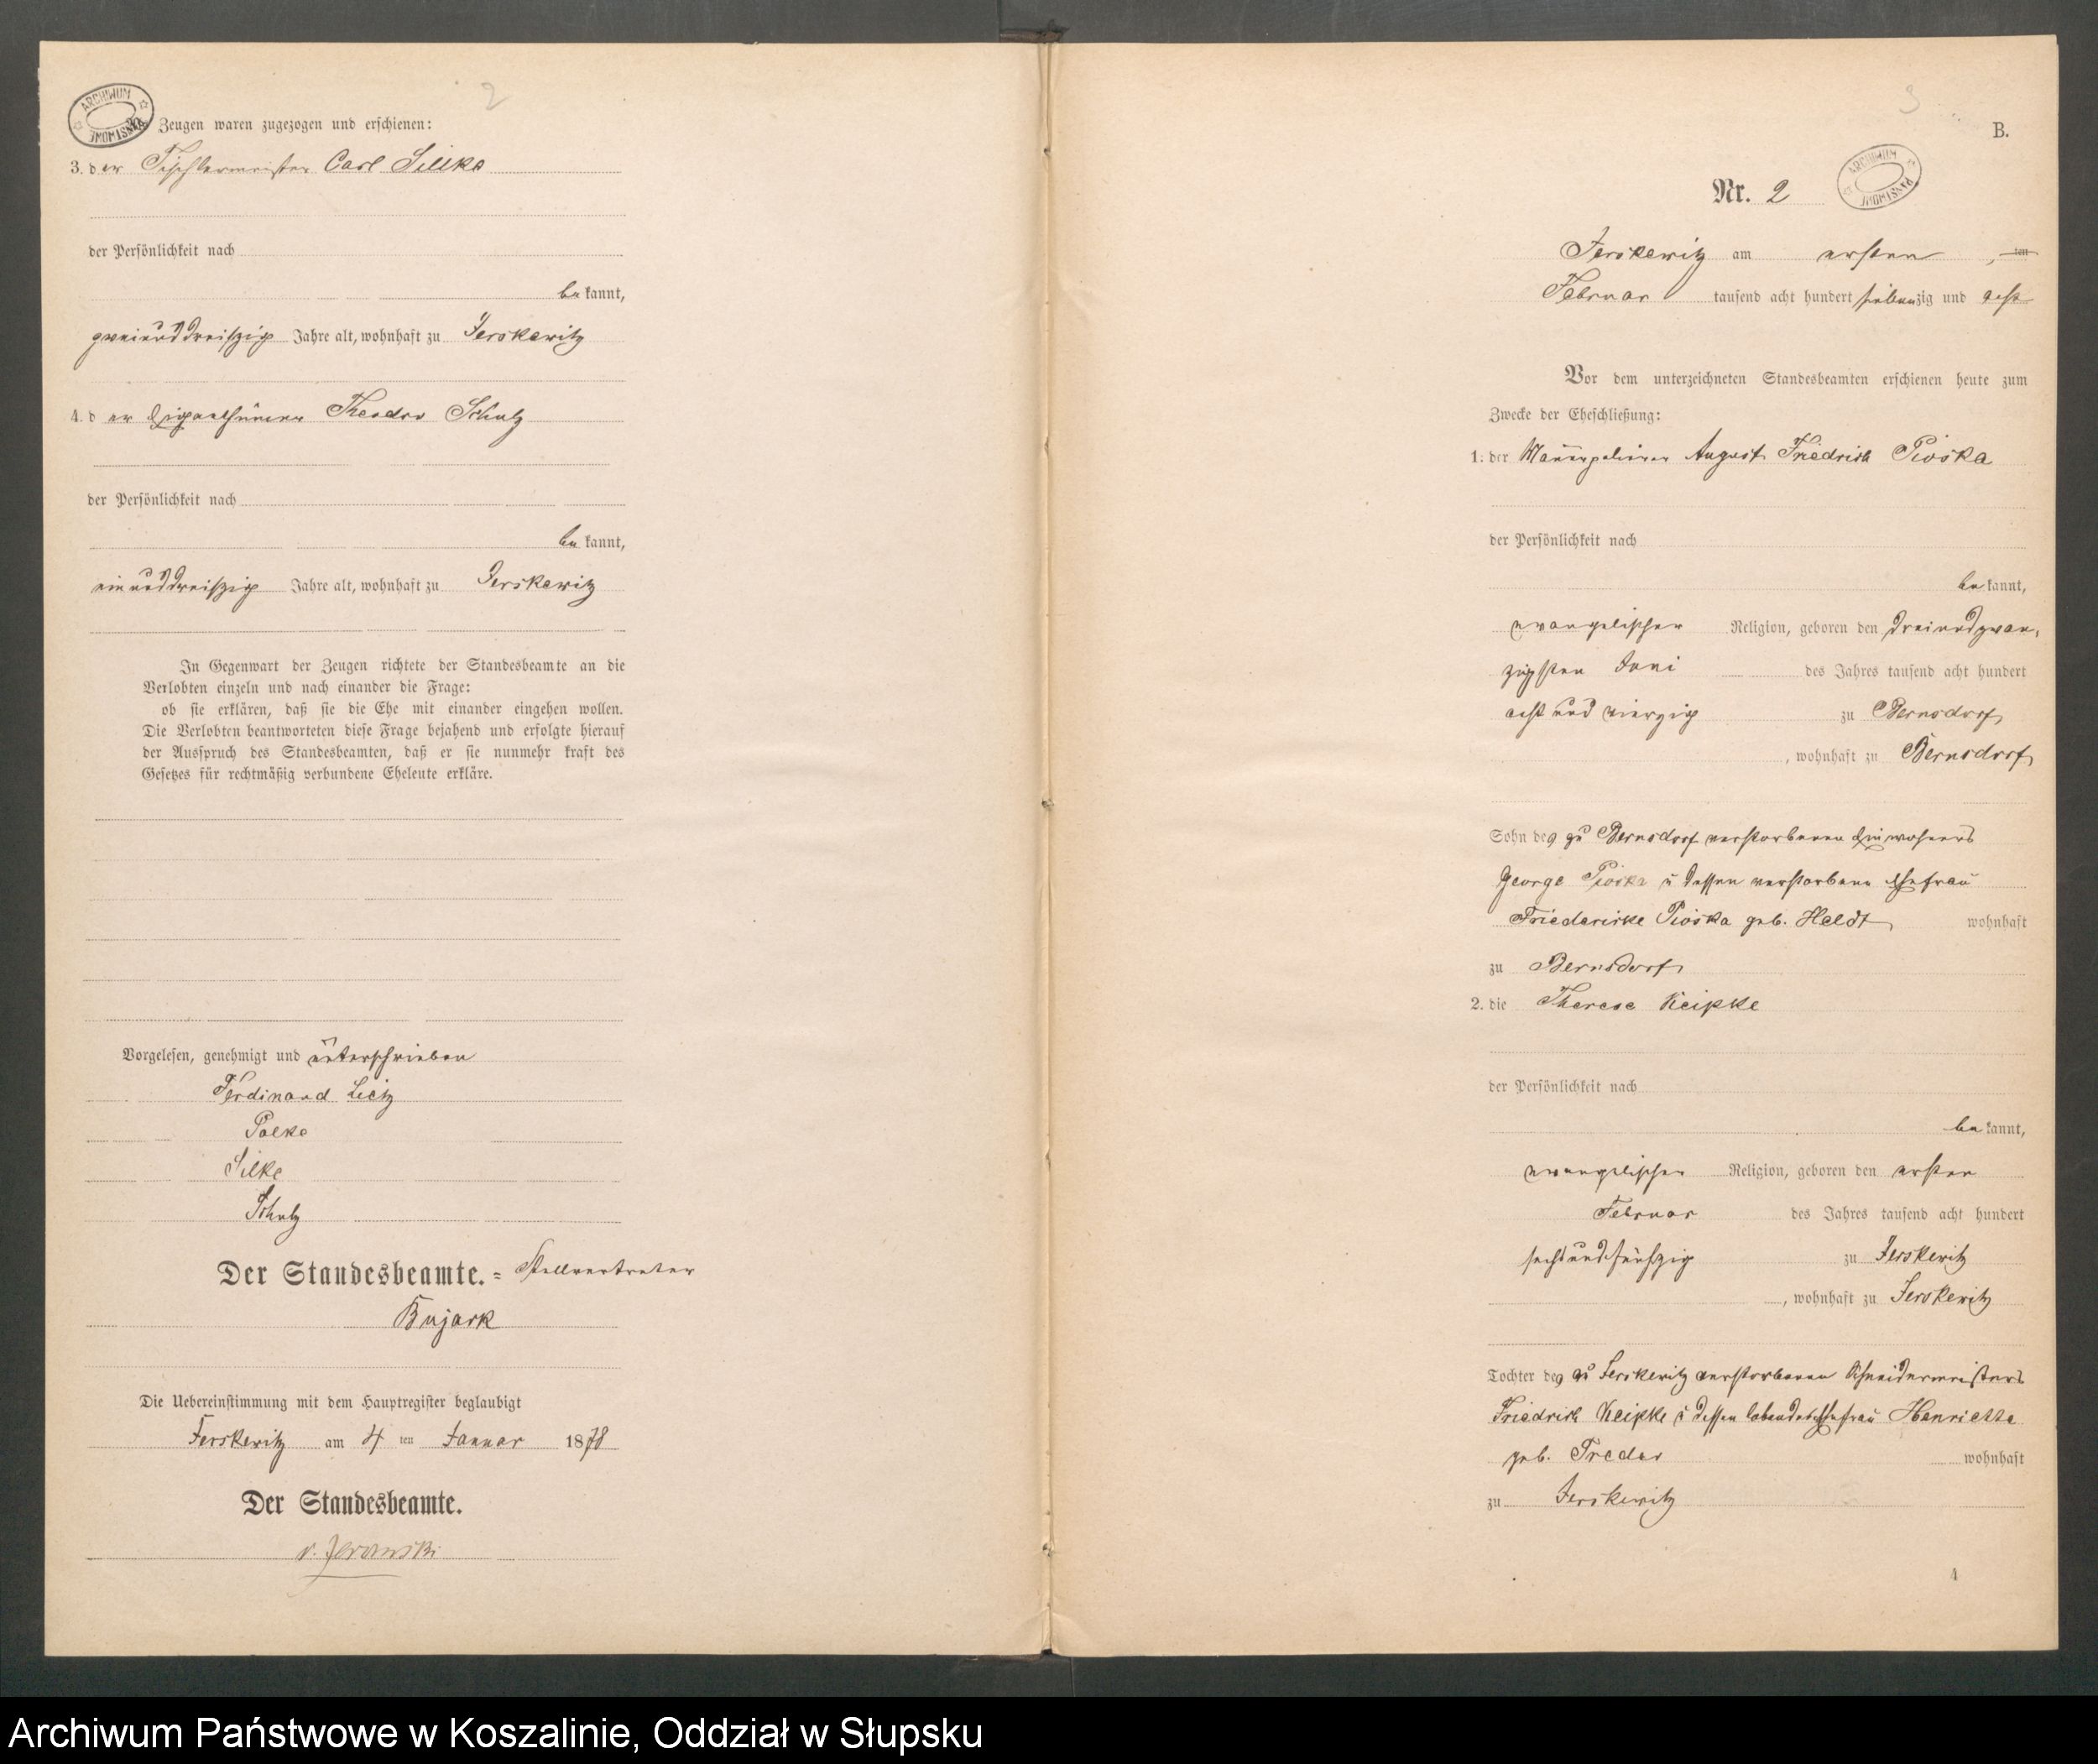 2
ARCHIWUM PAŃSTWOWE
Zeugen waren zugezogen und erschienen:
3. der Tischlermeister Carl Silke
der Persönlichkeit nach
bekannt,
zweiunddreißzig Jahre alt, wohnhaft zu Jerskewitz
4. der Eigenthümer Theodor Schulz
der Persönlichkeit nach
bekannt,
einunddreißzig Jahre alt, wohnhaft zu Jerskewitz
In Gegenwart der Zeugen richtete der Standesbeamte an die
Verlobten einzeln und nach einander die Frage:
ob sie erklären, daß sie die Ehe mit einander eingehen wollen.
Die Verlobten beantworteten diese Frage bejahend und erfolgte hierauf
der Ausspruch des Standesbeamten, daß er sie nunmehr kraft des
Gesetzes für rechtmäßig verbundene Eheleute erkläre.
Vorgelesen, genehmigt und unterschrieben
Ferdinand Lietz
Silke
Schulz
Der Standesbeamte. = Stellvertreter
Bujack
Die Uebereinstimmung mit dem Hauptregister beglaubigt
Jerskewitz am 4 ten Januar 1878
Der Standesbeamte.
3
B.
ARCHIWUM PAŃSTWOWE
Nr. 2
Jerskewitz am ersten , ten
Februar tausend acht hundert siebenzig und acht
Vor dem unterzeichneten Standesbeamten erschienen heute zum
Zwecke der Eheschließung:
1. der August Friedrich Pioska
der Persönlichkeit nach
bekannt,
evangelischen Religion, geboren den dreiundzwan-
zigsten Juni des Jahres tausend acht hundert
acht und vierzig zu Bernsdorf,
, wohnhaft zu Bernsdorf,
Sohn des zu Bernsdorf verstorbenen Einwohners
George Pioska u dessen verstorbene Ehefrau
Friedericke Pioska geb. Heldt, wohnhaft
zu Bernsdorf
2. die Therese Keipke
der Persönlichkeit nach
bekannt,
evangelischen Religion, geboren den ersten
Februar des Jahres tausend acht hundert
sechsundfünfzig zu Jerskewitz
, wohnhaft zu Jerskewitz
Tochter des zu Jerskewitz verstorbenen Schneidermeisters
Friedrich Keipke u dessen lebende Ehefrau Henriette
geb. Treder wohnhaft
zu Jerskewitz
Archiwum Państwowe w Koszalinie, Oddział w Słupsku